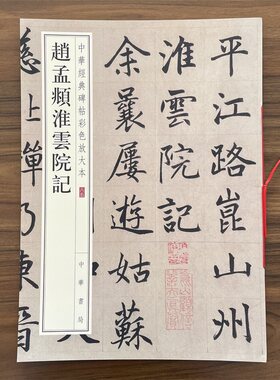 平江路崑山州
淮雲院記
余曩屢遊姑蘇
中華經典碑帖彩色放大本
趙孟頫淮雲院記
中華書局
上
乃